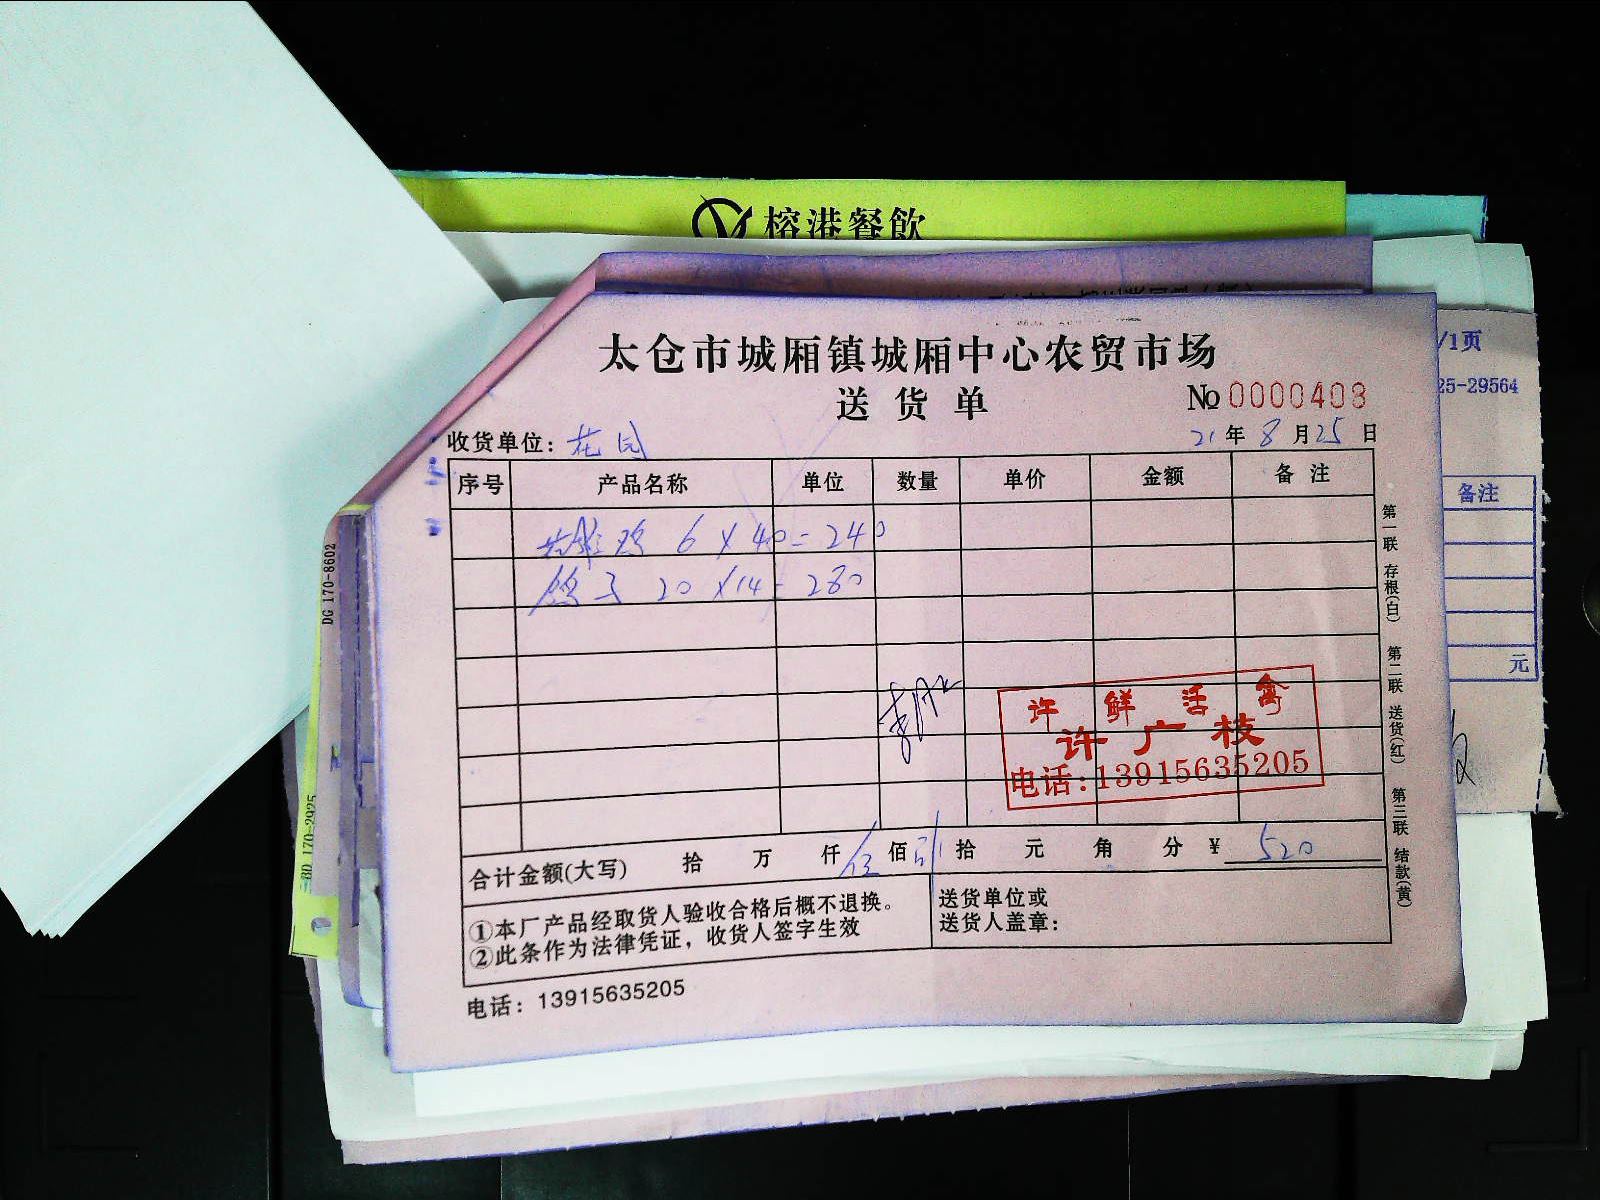 榕港餐飲
太仓市城厢镇城厢中心农贸市场
送货单
No 0000403
收货单位：花园
21年8月25日
序号 产品名称 单位 数量 单价 金额 备注
鸡 6×40=240
鸽子 20×14=280
许鲜活禽
许广枝
电话:13915635205
合计金额(大写) 拾 万 仟 伍佰 贰拾 元 角 分 ¥ 520
①本厂产品经取货人验收合格后概不退换。
②此条作为法律凭证，收货人签字生效
送货单位或
送货人盖章：
电话：13915635205
第一联 存根(白) 第二联 送货(红) 第三联 结款(黄)
/1页
25-29564
备注
元
DG 170-8602
BD 170-2925